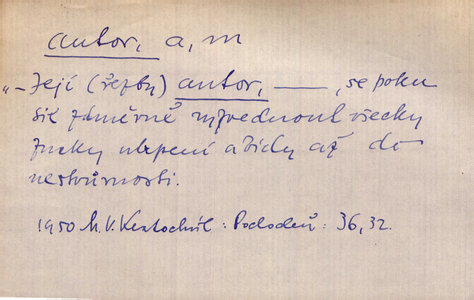 autor, a, m
„— Její (řezby) autor, ——, se poku
sil záměrně vyzvednout všecky
znaky utrpení a bídy až do
nestvůrnosti.
1950 M. V. Kratochvíl: : 36, 32.